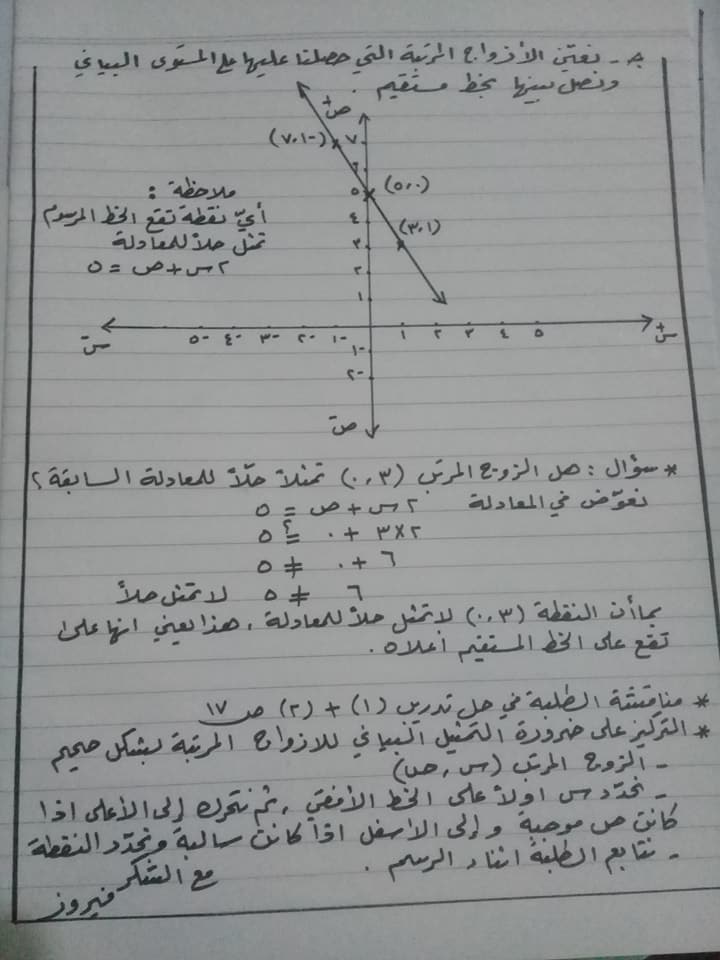 جـ - نعيّن الأزواج المرتبة التي حصلنا عليها على المستوى البياني
ونصل بينها بخط مستقيم .
ص+
(-١ ، ٧)
٧
٦
(٠ ، ٥)
٥
ملاحظة :
أيّ نقطة تقع الخط المرسوم
تمثل حلاً للمعادلة
٢س + ص = ٥
٤
(١ ، ٣)
٣
٢
١
س-
-٥ -٤ -٣ -٢ -١ ١ ٢ ٣ ٤ ٥
س+
-١
-٢
ص-
* سؤال : هل الزوج المرتب (٣ ، ٠) تمثلاً حلاً للمعادلة السابقة ؟
نعوّض في المعادلة ٢س + ص = ٥
٢×٣ + ٠ =؟ ٥
٦ + ٠ ≠ ٥
٦ ≠ ٥ لا تمثل حلاً
بما أن النقطة (٣ ، ٠) لا تمثل حلاً للمعادلة ، هذا يعني انها
تقع على الخط المستقيم أعلاه .
* مناقشة الطلبة في حل تدريب (١) + (٢) ص ١٧
* التركيز على ضرورة التمثيل البياني للازواج المرتبة بشكل صحيح
- الزوج المرتب (س ، ص)
- نحدد س اولاً على الخط الأفقي ، ثم نتحرك إلى الأعلى اذا
كانت ص موجبة وإلى الاسفل اذا كانت سالبة ونحدد النقطة
- نتابع الطلبة اثناء الرسم .
مع الشكر
فيروز